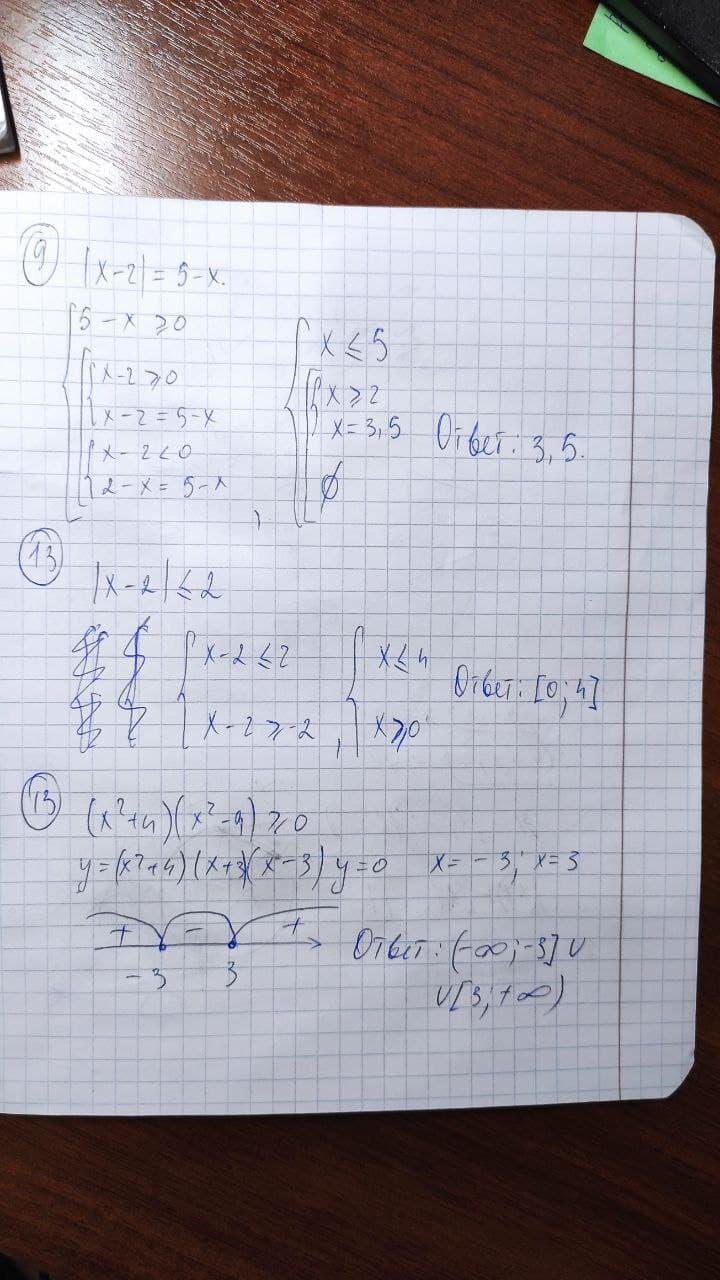 9
|x-2| = 5-x.
5-x ⩾ 0
x-2 ⩾ 0
x-2 = 5-x
x-2 < 0
2-x = 5-x ,
x ⩽ 5
x ⩾ 2
x = 3,5
∅
Ответ: 3,5.
13
|x-2| ⩽ 2
x-2 ⩽ 2
x-2 ⩾ -2 ,
x ⩽ 4
x ⩾ 0
Ответ: [0; 4]
13
(x²+4)(x²-9) ⩾ 0
y = (x²+4)(x+3)(x-3) y=0 x = -3; x = 3
+ - +
-3 3
Ответ: (-∞; -3] ∪
∪ [3; +∞)